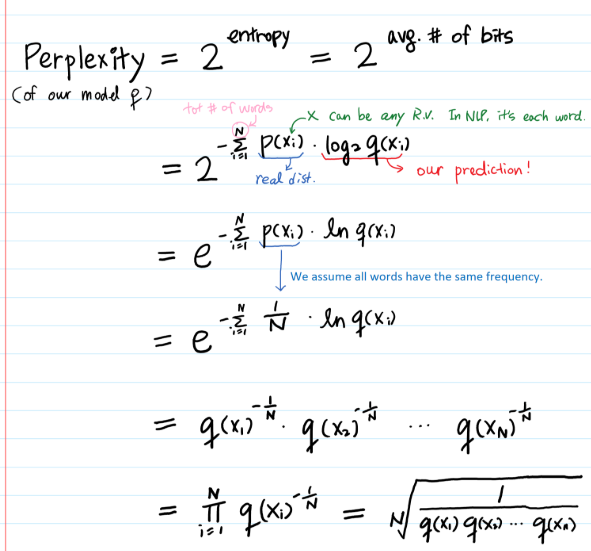 Perplexity = 2^entropy = 2^avg. # of bits
(of our model q)
tot # of words
X can be any R.V. In NLP, it's each word.
= 2^-Σ_{i=1}^{N} p(xᵢ) · log₂ q(xᵢ)
real dist.
our prediction!
= e^-Σ_{i=1}^{N} p(xᵢ) · ln q(xᵢ)
We assume all words have the same frequency.
= e^-Σ_{i=1}^{N} 1/N · ln q(xᵢ)
= q(x₁)^-1/N · q(x₂)^-1/N ... q(x_N)^-1/N
= ∏_{i=1}^{N} q(xᵢ)^-1/N = ᴺ√(1/(q(x₁) q(x₂) ... q(xₙ)))